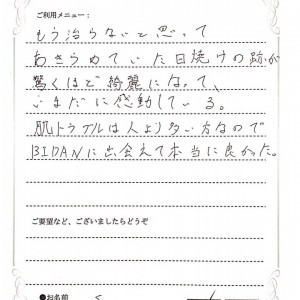 ご利用メニュー：
もう治らないと思って
あきらめていた日焼けの跡が
驚くほど綺麗になって、
いまだに感動している。
肌トラブルは人より多い方なので
BIDANに出会えて本当に良かった。
ご要望など、ございましたらどうぞ
●お名前